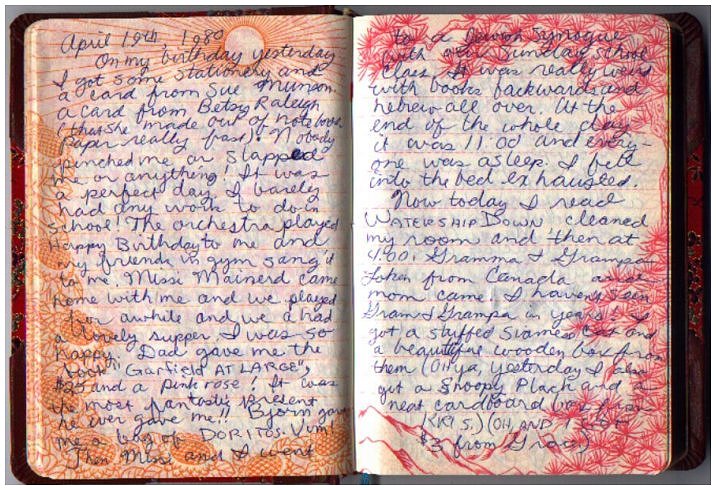 April 19th, 1980
On my birthday yesterday
I got some stationery and
a card from Sue Munson
a card from Betsy Raleigh
(this she made out of notebook
paper really fast). Nobody
pinched me or slapped
me or anything! It was
a perfect day. I barely
had any work to do in
school! The orchestra played
Happy Birthday to me and
my friends in gym sang it
to me. Missi Mainerd came
home with me and we played
for awhile and we a had
a lovely supper. I was so
happy. Dad gave me the
book "GARFIELD AT LARGE",
$25 and a pink rose! It was
the most fantastic present
he ever gave me!! Bjorn gave
me a bag of DORITOS. Yum!
Then Missi and I went
to a Jewish Synogue
with our Sunday school
class. It was really weird
with books backwards and
hebrew all over. At the
end of the whole day
it was 11:00 and every-
one was asleep. I fell
into the bed exhausted.
Now today I read
WATERSHIP DOWN cleaned
my room and then at
4:00, Gramma & Grampa
from Canada
mom came. I haven't seen
Gram & Grampa in years. I
got a stuffed Siamese Cat and
a beautiful wooden box from
them (Oh ya, yesterday I also
got a Snoopy Plack and a
neat cardboard box from
KRIS.) (OH, AND I GOT
$3 from Grace)